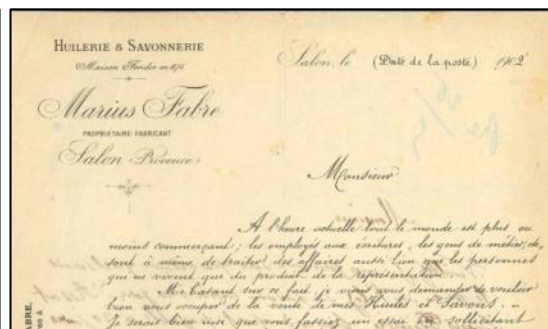 HUILERIE & SAVONNERIE
Maison Fondée en
Marius Fabre
PROPRIÉTAIRE-FABRICANT
Salon (Provence)
Salon, le (Date de la poste) 1902
Monsieur
A l'heure actuelle tout le monde est plus ou
moins commerçant; les employés aux écritures, les gens de métier, etc,
sont à même de traiter des affaires aussi bien que les personnes
qui ne vivent que du produit de la représentation.
Me basant sur ce fait, je viens vous demander de vouloir
bien vous occuper de la vente de mes Huiles et Savons. _
Je serais bien aise que vous fassiez un essai en sollicitant
FABRE,